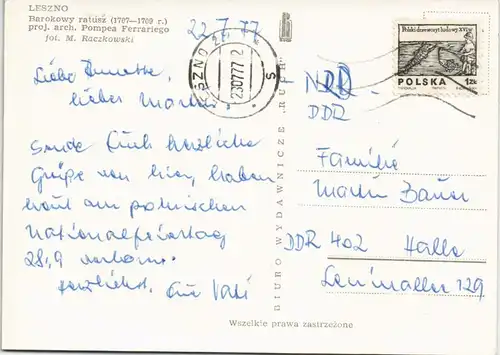 LESZNO
Barokowy ratusz (1707—1709 r.)
proj. arch. Pompea Ferrariego
fot. M. Raczkowski
22.7.77
LESZNO 2
Polski drzeworyt ludowy XVI w.
POLSKA 1 ZŁ
Liebe Annette,
lieber Martin
Sende Euch herzliche
Grüße von hier, haben
heut am polnischen
Nationalfeiertag
Herzlichst, Euer Vati
BIURO WYDAWNICZE „RUCH”
DDR
Familie
Martin Bauer
DDR 402 Halle
129
Wszelkie prawa zastrzeżone